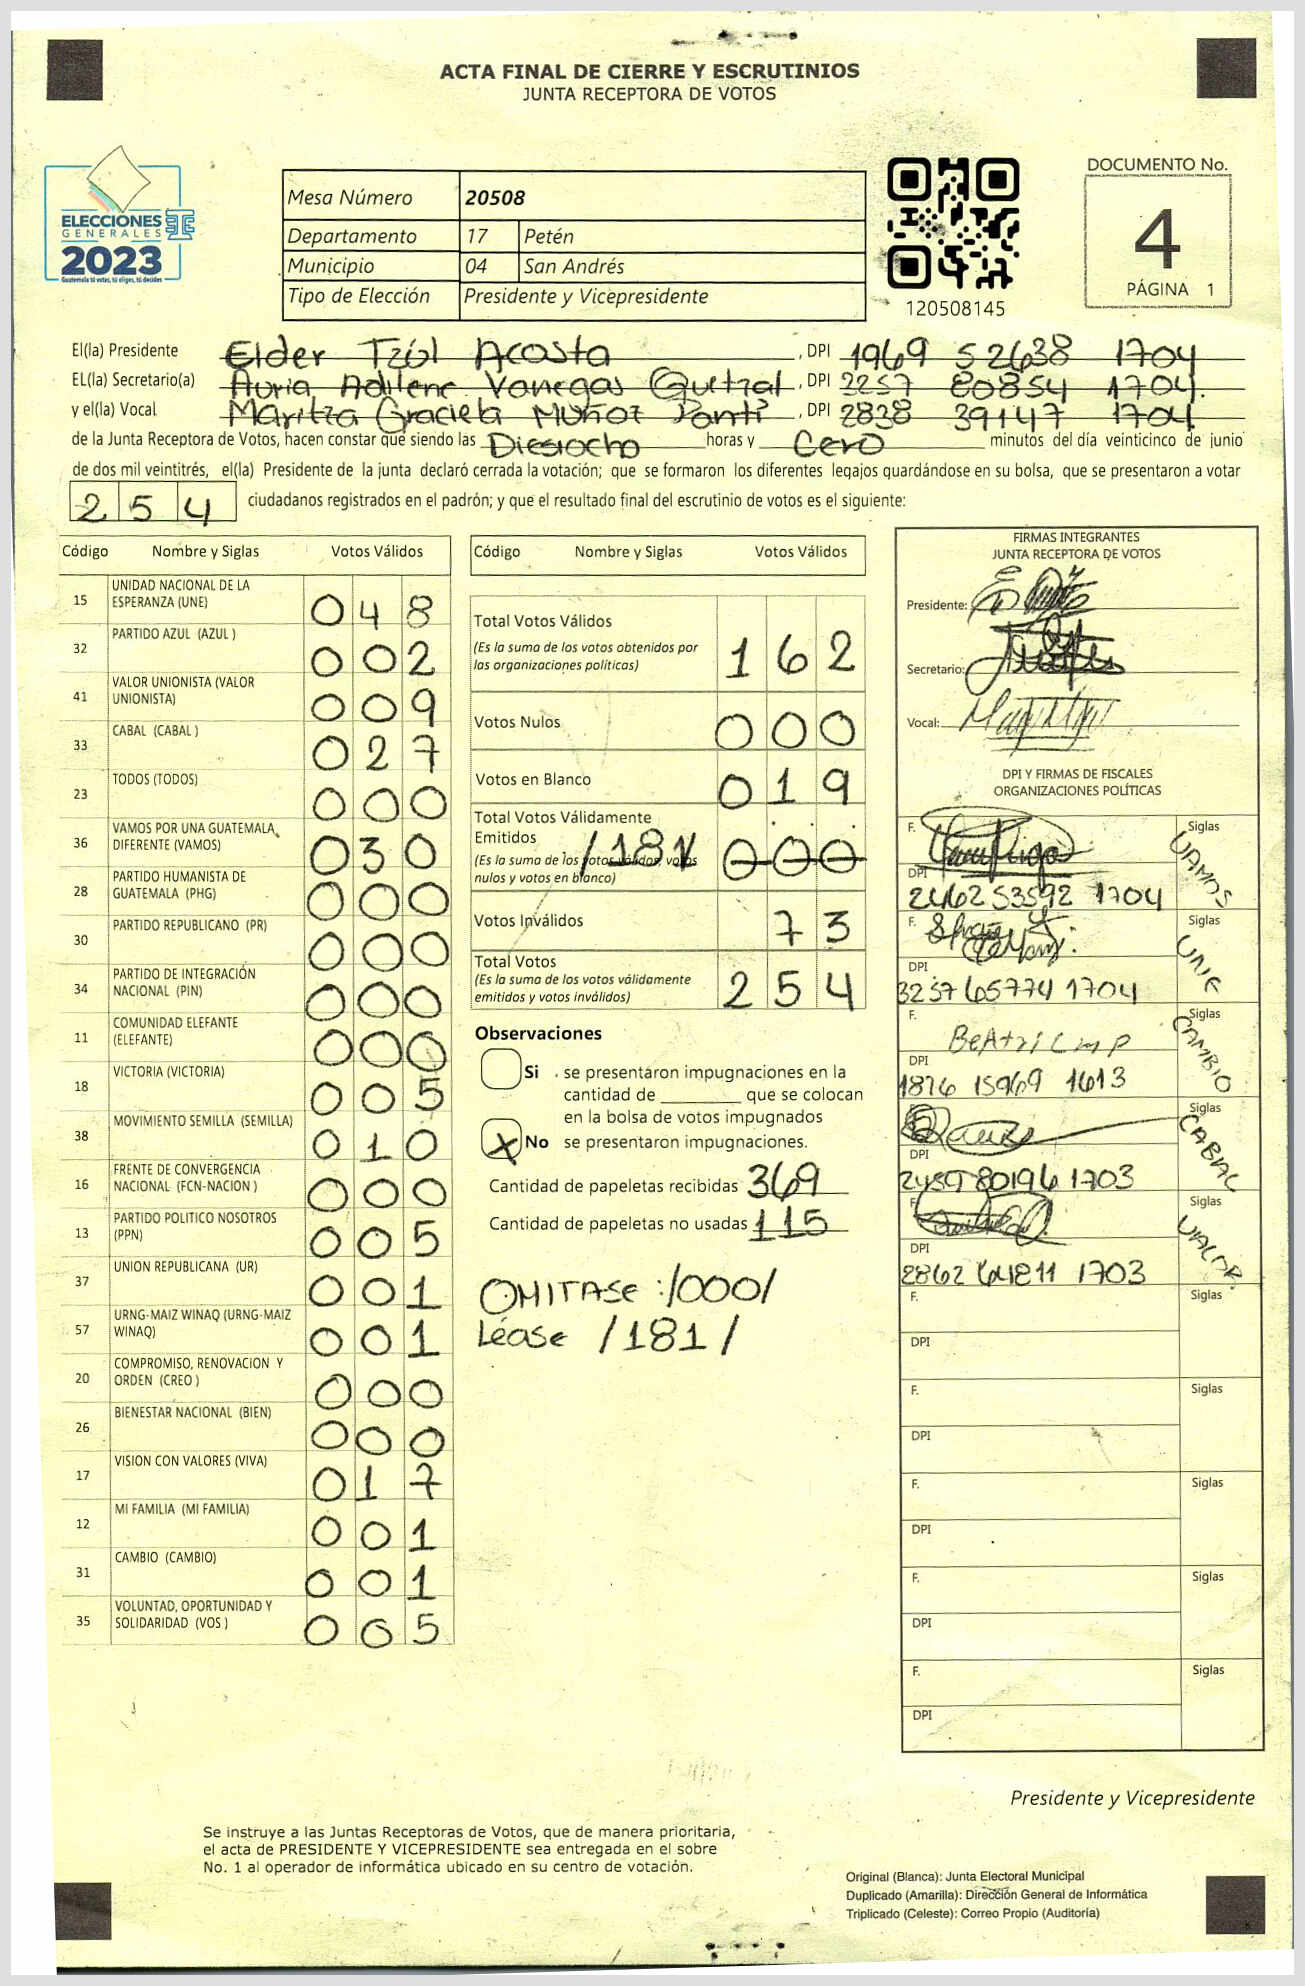 ACTA FINAL DE CIERRE Y ESCRUTINIOS
JUNTA RECEPTORA DE VOTOS
ELECCIONES
GENERALES
2023
Guatemala tú votas, tú eliges, tú decides
Mesa Número 20508
Departamento 17 Petén
Municipio 04 San Andrés
Tipo de Elección Presidente y Vicepresidente
120508145
DOCUMENTO No.
4
PÁGINA 1
El(la) Presidente Elder Tzúl Acosta , DPI 1969 52638 1704
EL(la) Secretario(a) Auria Adilene Vanegas Quetzal , DPI 2257 80854 1704.
y el(la) Vocal Maritza Graciela Muñoz Pantí , DPI 2838 39147 1704
de la Junta Receptora de Votos, hacen constar que siendo las Diesiocho horas y Cero minutos del día veinticinco de junio
de dos mil veintitrés, el(la) Presidente de la junta declaró cerrada la votación; que se formaron los diferentes legajos guardándose en su bolsa, que se presentaron a votar
254 ciudadanos registrados en el padrón; y que el resultado final del escrutinio de votos es el siguiente:
Código Nombre y Siglas Votos Válidos
15 UNIDAD NACIONAL DE LA ESPERANZA (UNE) 048
32 PARTIDO AZUL (AZUL ) 002
41 VALOR UNIONISTA (VALOR UNIONISTA) 009
33 CABAL (CABAL ) 027
23 TODOS (TODOS) 000
36 VAMOS POR UNA GUATEMALA DIFERENTE (VAMOS) 030
28 PARTIDO HUMANISTA DE GUATEMALA (PHG) 000
30 PARTIDO REPUBLICANO (PR) 000
34 PARTIDO DE INTEGRACIÓN NACIONAL (PIN) 000
11 COMUNIDAD ELEFANTE (ELEFANTE) 000
18 VICTORIA (VICTORIA) 005
38 MOVIMIENTO SEMILLA (SEMILLA) 010
16 FRENTE DE CONVERGENCIA NACIONAL (FCN-NACION ) 000
13 PARTIDO POLITICO NOSOTROS (PPN) 005
37 UNION REPUBLICANA (UR) 001
57 URNG-MAIZ WINAQ (URNG-MAIZ WINAQ) 001
20 COMPROMISO, RENOVACION Y ORDEN (CREO ) 000
26 BIENESTAR NACIONAL (BIEN) 000
17 VISION CON VALORES (VIVA) 017
12 MI FAMILIA (MI FAMILIA) 001
31 CAMBIO (CAMBIO) 001
35 VOLUNTAD, OPORTUNIDAD Y SOLIDARIDAD (VOS ) 005
Código Nombre y Siglas Votos Válidos
Total Votos Válidos 162
(Es la suma de los votos obtenidos por
las organizaciones políticas)
Votos Nulos 000
Votos en Blanco 019
Total Votos Válidamente
Emitidos /181/ 000
(Es la suma de los votos válidos, votos
nulos y votos en blanco)
Votos Inválidos 73
Total Votos 254
(Es la suma de los votos válidamente
emitidos y votos inválidos)
Observaciones
Si se presentaron impugnaciones en la
cantidad de ________ que se colocan
en la bolsa de votos impugnados
X No se presentaron impugnaciones.
Cantidad de papeletas recibidas 369
Cantidad de papeletas no usadas 115
OMITASE :/000/
Léase /181/
FIRMAS INTEGRANTES
JUNTA RECEPTORA DE VOTOS
Presidente:
Secretario:
Vocal:
DPI Y FIRMAS DE FISCALES
ORGANIZACIONES POLÍTICAS
F. Siglas VAMOS
DPI 2462 53592 1704
F. Siglas UNE
DPI 3257 65774 1704
F. Siglas CAMBIO
DPI 1876 15969 1613
Siglas CABAL
DPI 2459 80196 1703
F. Siglas VALOR.
DPI 2862 64811 1703
F. Siglas
DPI
F. Siglas
DPI
F. Siglas
DPI
F. Siglas
DPI
F. Siglas
DPI
Presidente y Vicepresidente
Se instruye a las Juntas Receptoras de Votos, que de manera prioritaria,
el acta de PRESIDENTE Y VICEPRESIDENTE sea entregada en el sobre
No. 1 al operador de informática ubicado en su centro de votación.
Original (Blanca): Junta Electoral Municipal
Duplicado (Amarilla): Dirección General de Informática
Triplicado (Celeste): Correo Propio (Auditoría)